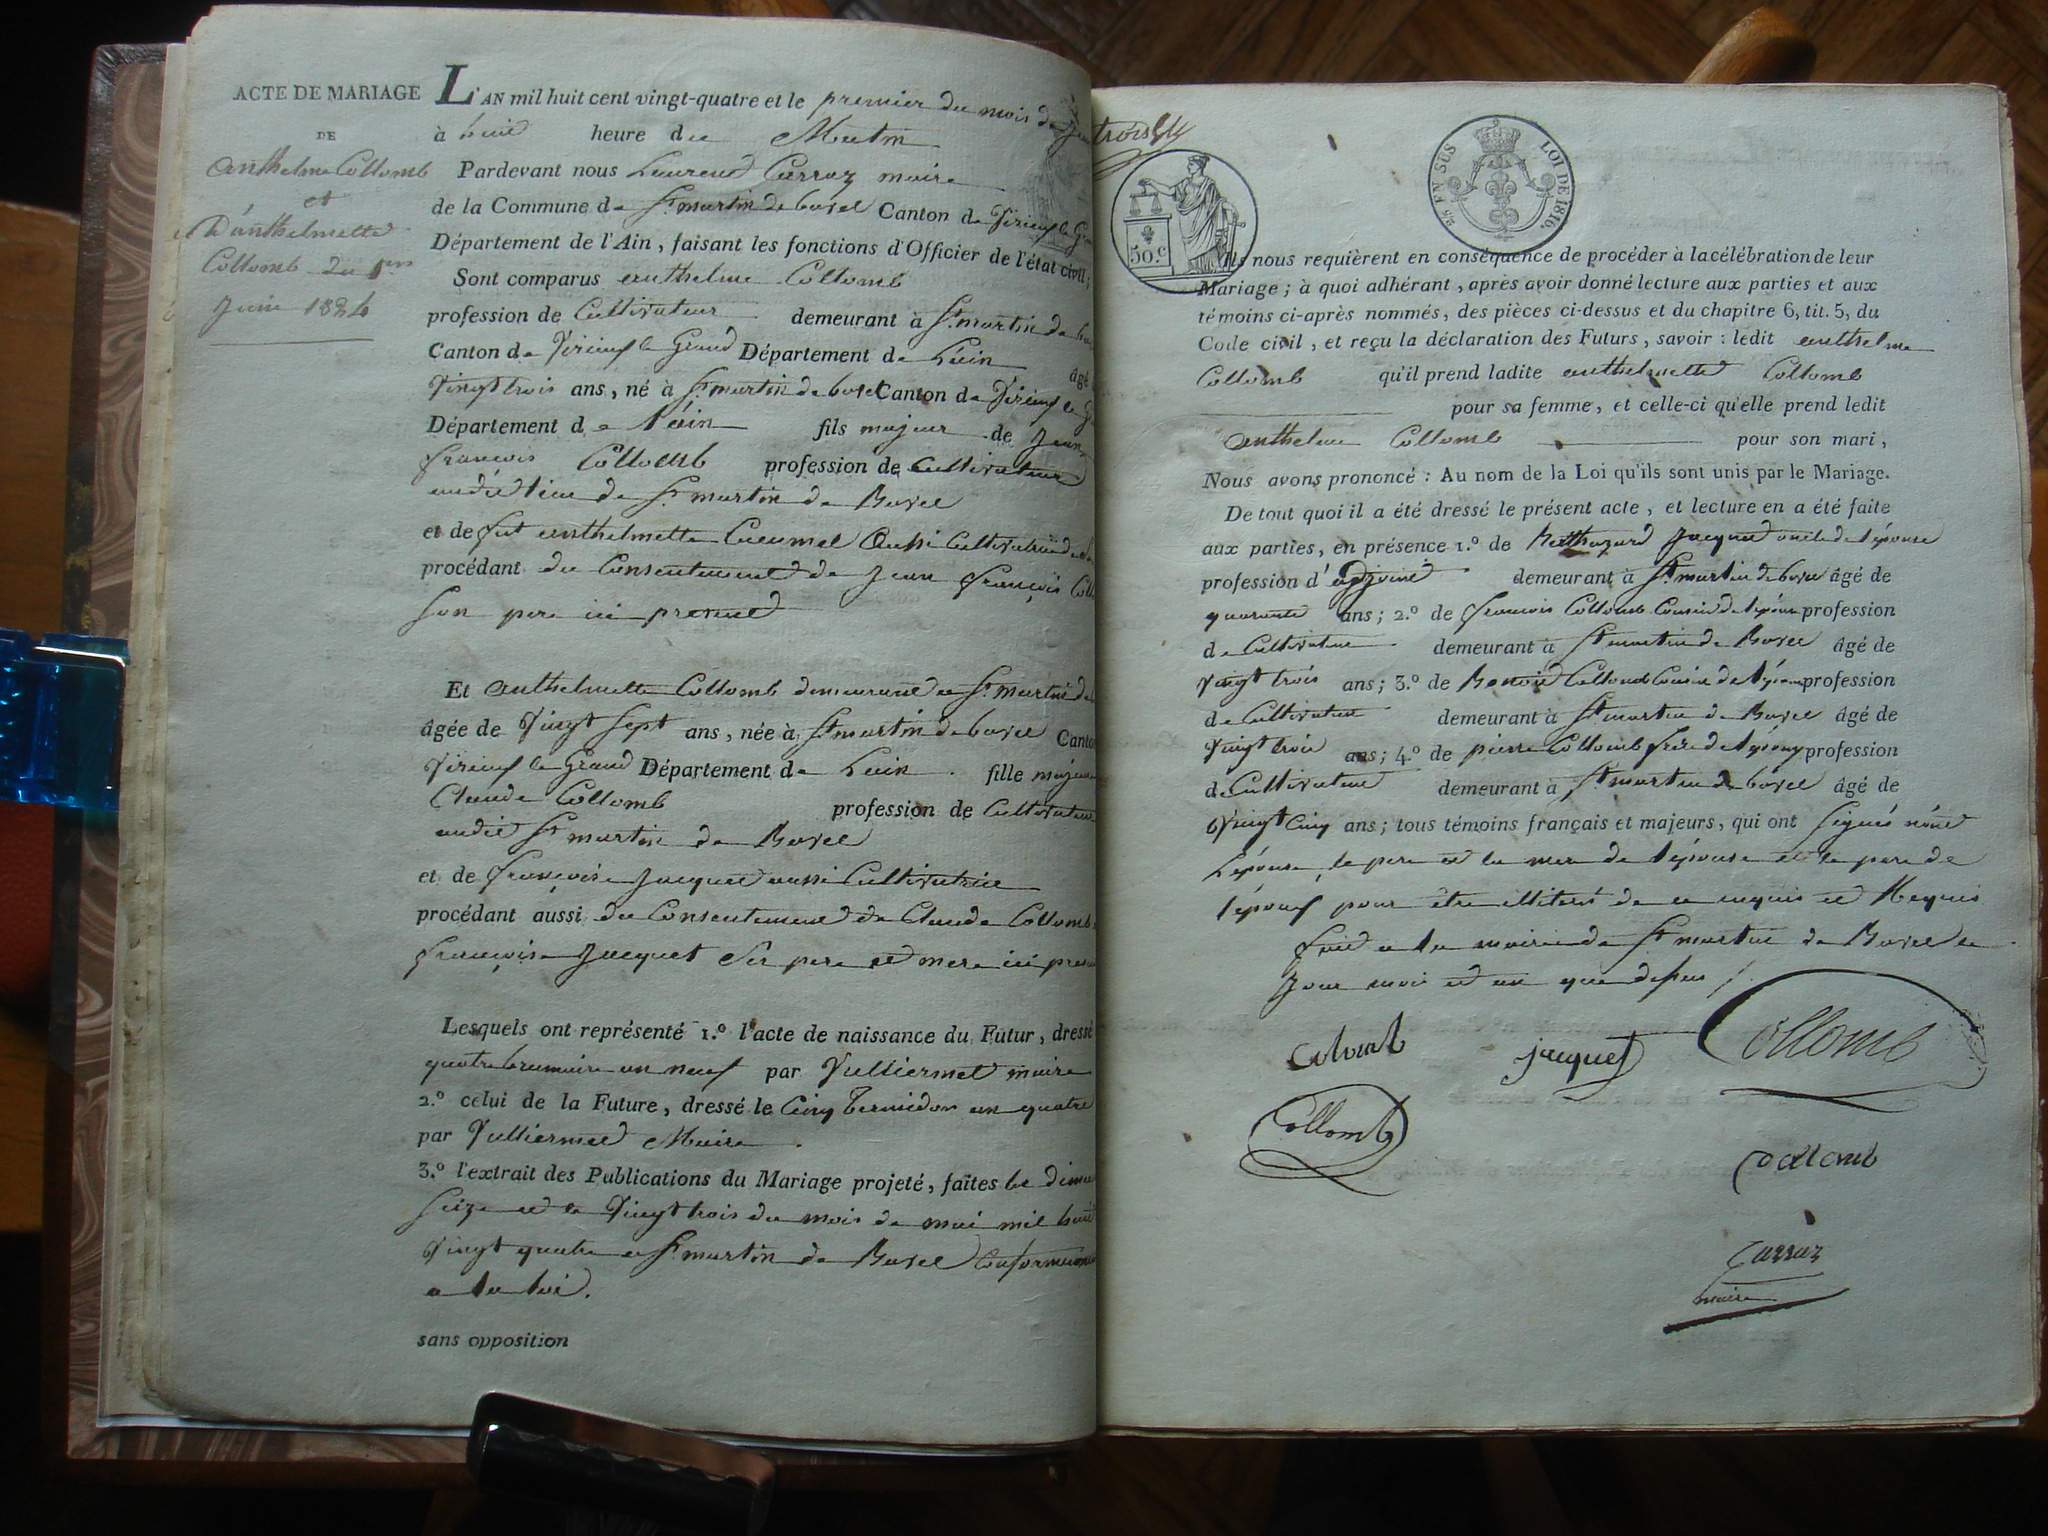 ACTE DE MARIAGE
DE
Anthelme Collomb
et
D'anthelmette
Collomb du 1er
Juin 1824
L'AN mil huit cent vingt-quatre et le premier du mois de
à huit heure du Matin
Pardevant nous Laurent Carraz maire
de la Commune de St martin de bavel Canton de Virieux le
Département de l'Ain, faisant les fonctions d'Officier de l'état civil;
Sont comparus anthelme Collomb
profession de Cultivateur demeurant à St martin de
Canton de Virieux le Grand Département de Lain âgé
Vingt trois ans, né à St martin de bavel Canton de Virieux le
Département de l'ain fils majeur de Jean
francois Collomb profession de Cultivateur
audit lieu de St martin de Bavel
et de fut anthelmette aussi Cultivatrice
procédant du Consentement de Jean françois
son pere ici present
Et anthelmette Collomb demeurant a St martin de
âgée de Vingt sept ans, née à St martin de bavel Canton
Virieux le Grand Département de Lain fille majeure
Claude Collomb profession de Cultivateur
audit St martin de Bavel
et de françoise Jacquet aussi Cultivatrice
procédant aussi du Consentement de Claude Collomb
françoise Jacquet Ses pere et mere ici
Lesquels ont représenté 1.º l'acte de naissance du Futur, dressé
quatre brumaire an neuf par Vulliermet maire
2.º celui de la Future, dressé le Cinq Termidor an quatre
par Vulliermet Maire
3.º l'extrait des Publications du Mariage projeté, faites le
Seize et le Vingt trois du mois de mai mil huit
Vingt quatre a St martin de Bavel Conformement
a la loi.
sans opposition
50.c
25 EN SUS LOI DE 1816.
Ils nous requièrent en conséquence de procéder à la célébration de leur
Mariage; à quoi adhérant, après avoir donné lecture aux parties et aux
témoins ci-après nommés, des pièces ci-dessus et du chapitre 6, tit. 5, du
Code civil, et reçu la déclaration des Futurs, savoir: ledit anthelme
Collomb qu'il prend ladite anthelmette Collomb
pour sa femme, et celle-ci qu'elle prend ledit
Anthelme Collomb pour son mari,
Nous avons prononcé: Au nom de la Loi qu'ils sont unis par le Mariage.
De tout quoi il a été dressé le présent acte, et lecture en a été faite
aux parties, en présence 1.º de Jacquet oncle de lépouse
profession d'adjoint demeurant à St martin de bavel âgé de
quarante ans; 2.º de françois Collomb Cousin de lépoux profession
de Cultivateur demeurant à St martin de Bavel âgé de
Vingt trois ans; 3.º de Benoit Collomb Cousin de lépoux profession
de Cultivateur demeurant à St martin de Bavel âgé de
Vingt trois ans; 4.º de pierre Collomb frère de lépoux profession
de Cultivateur demeurant à St martin de bavel âgé de
Vingt Cinq ans; tous témoins français et majeurs, qui ont Signés
Lépouse, le pere et la mere de lépouse et le pere de
lépoux pour être illiterés de ce enquis et Requis
fait a la mairie de St martin de Bavel le
Jour mois et an que dessus
Colomb jacquet Collomb
Collomb
Collomb
Carraz
maire